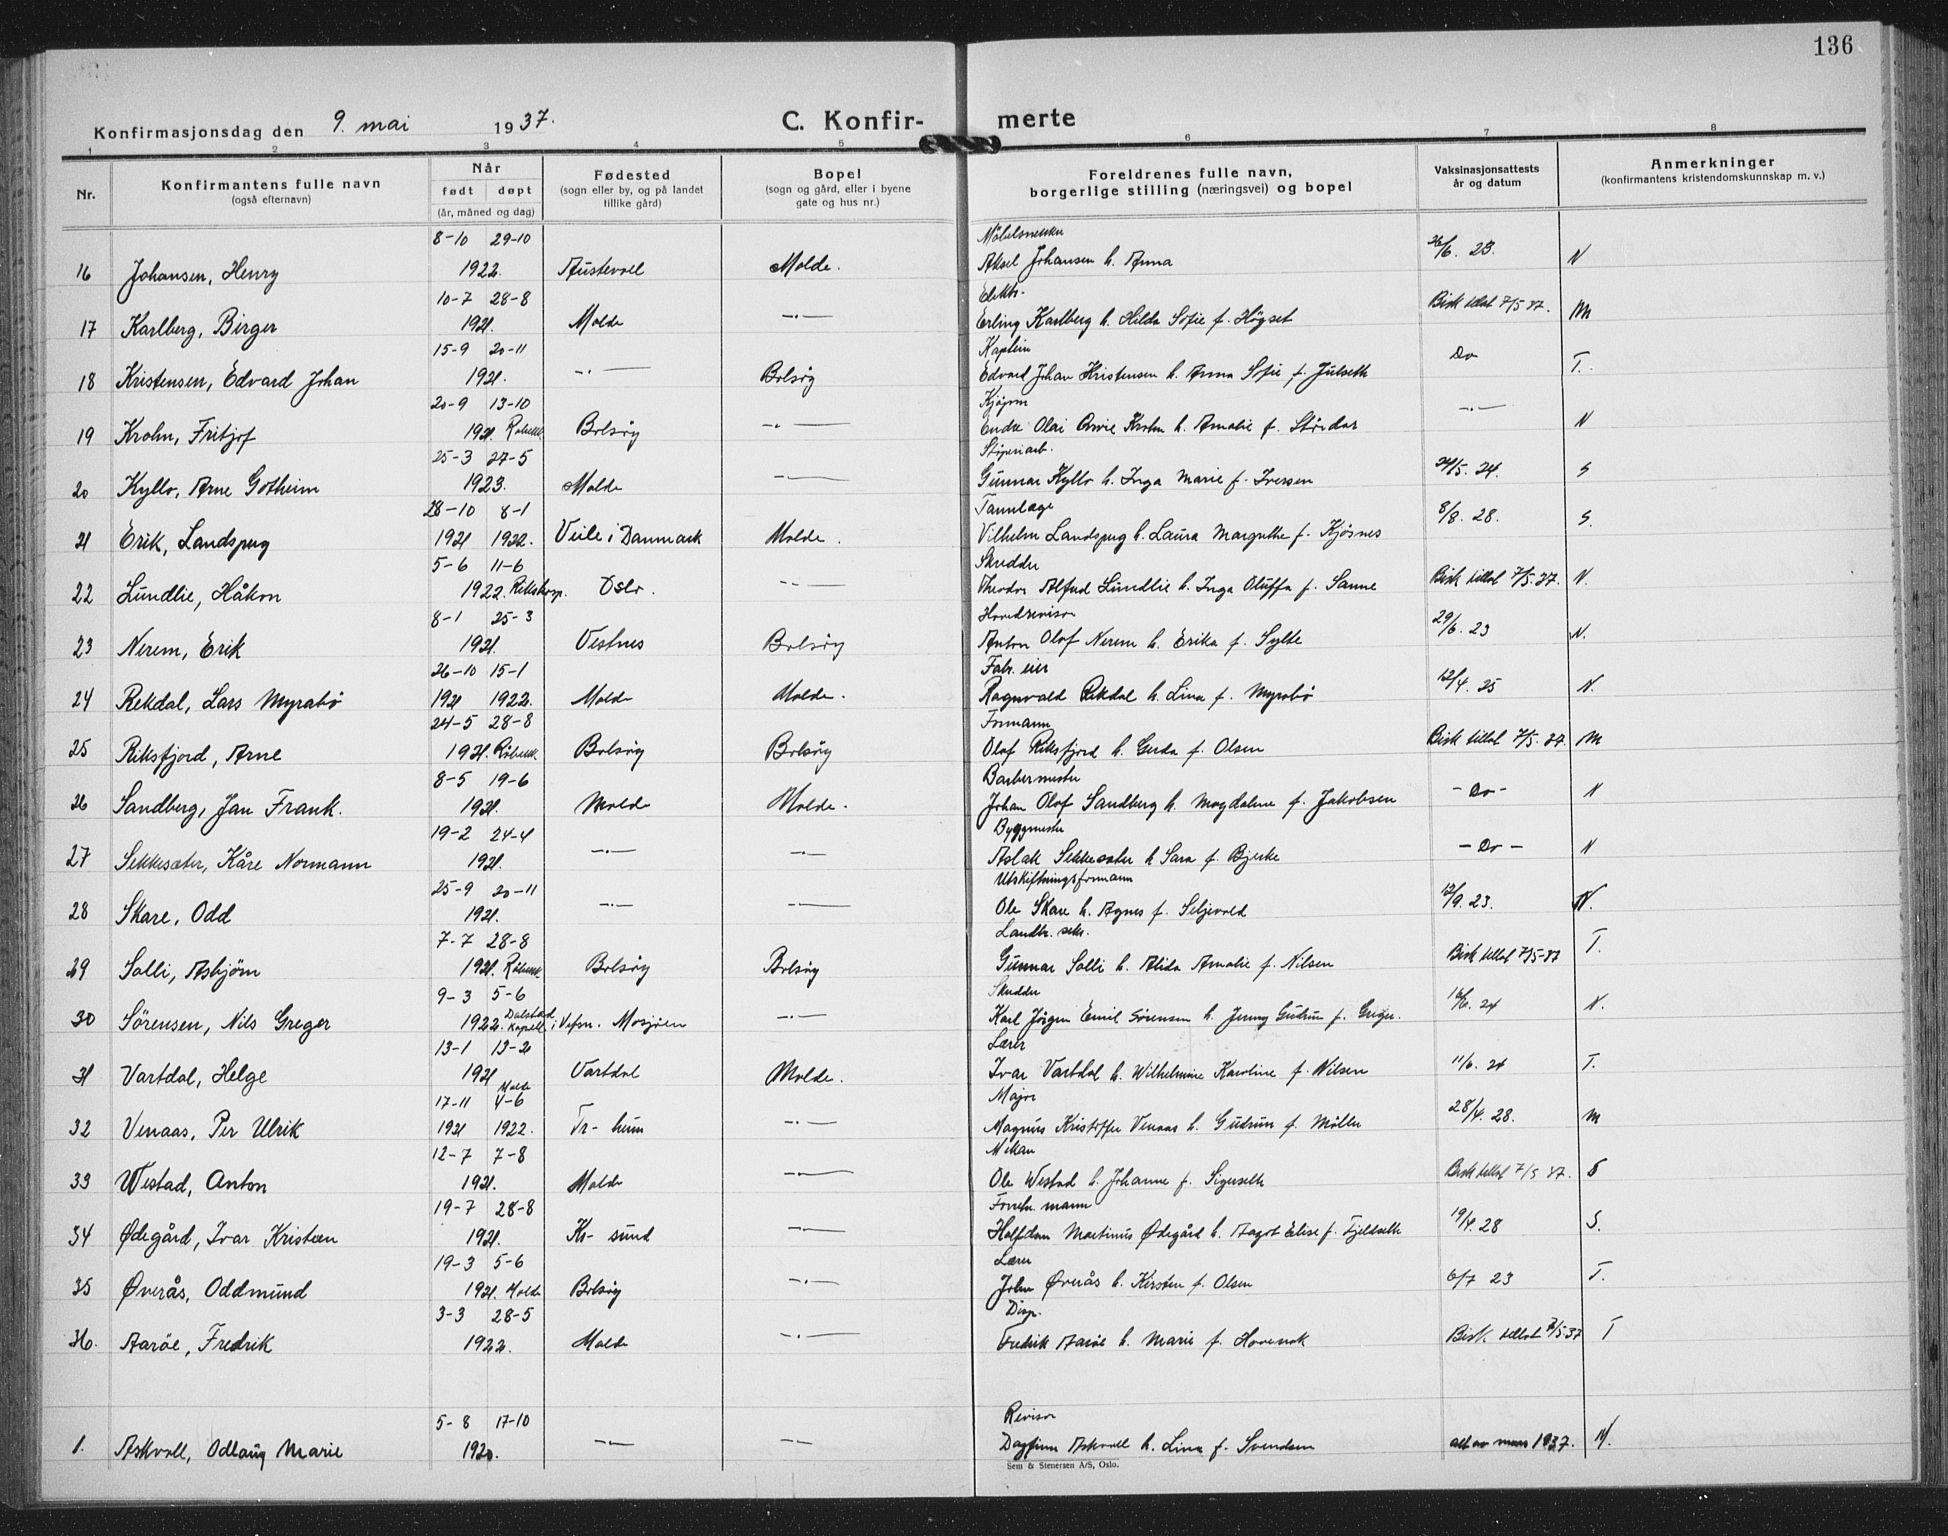 136
Konfirmasjonsdag den 9. mai 1937.
C. Konfirmerte
1 2 3 4 5 6 7 8
Nr.
Konfirmantens fulle navn
(også efternavn)
Når
født døpt
(år, måned og dag)
Fødested
(sogn eller by, og på landet
tillike gård)
Bopel
(sogn og gård, eller i byene
gate og hus nr.)
Foreldrenes fulle navn,
borgerlige stilling (næringsvei) og bopel
Vaksinasjonsattests
år og datum
Anmerkninger
(konfirmantens kristendomskunnskap m. v.)
8-10 29-10 Møbelsnekker
16 Johansen, Henry 1922. Austevoll Molde. Aksel Johansen h. Anna 26/6. 23. N
10-7 28-8 Elektr.
17 Karlberg, Birger 1921. Molde -·- Erling Karlberg h. Hilda Sofie f. Høgset Bisk tillat 7/5 37. M
15-9 20-11 Kaptein
18 Kristensen, Edvard Johan 1921. -·- Bolsøy Edvard Johan Kristensen h. Anna Sofie f. Julseth Do T.
20-9 13-10 Kjøpm
19 Krohn, Fritjof 1921. Bolsøy -·- Olai Krohn h. Amalie f. -·- N
25-3 27-5 Støperiarb.
20 Kyllo, Arne Gotheim 1923. Molde -·- Gunnar Kyllo h. Inga Marie f. Iversen 24. S
28-10 8-1 Tannlæge
21 Erik, Landsperg 1921 1922. Veile i Danmark Molde. Vilhelm Landsperg h. Laura Margrethe f. Kjøsnes 8/8. 28. S.
5-6 11-6 Skredder
22 Lundlie, Håkon 1922. Oslo. -·- Theodor Alfred Lundlie h. Inga Oluffa f. Sanne Bisk tillat 7/5. 37. N.
8-1 25-3 Hovedrevisor
23 Nerem, Erik 1921. Vestnes Bolsøy Anton Olof Nerem h. Erika f. Sylte 29/6. 23 N.
26-10 15-1 Fabr. eier
24 Rekdal, Lars Myrabø 1921 1922. Molde Molde. Ragnvald Rekdal h. Lina f. Myrabø 12/4. 25 N.
24-5 28-8 Formann
25 Riksfjord, Arne 1921. Røbekk Bolsøy Bolsøy Olaf Riksfjord h. Gerda f. Olsen Bisk tillat 7/5. 37. M
8-5 19-6 Barbermester
26 Sandberg, Jan Frank. 1921. Molde Molde. Johan Olof Sandberg h. Magdalene f. Jakobsen - Do - N
19-2 24-4 Byggmester
27 Sekkesæter, Kåre Normann 1921. -·- -·- Aslak Sekkesæter h Sara f. Bjerke - Do - N
25-9 20-11 Utskiftningsformann
28 Skare, Odd 1921. -·- -·- Ole Skare h. Agnes f. Seljevold 12/9. 23. N.
7-7 28-8 Landbr. sekr.
29 Solli, Asbjørn 1921. Røbekk Bolsøy Bolsøy Gunnar Solli h. Alida Amalie f. Nilsen Bisk tillat 7/5-37 T.
9-3 5-6 Skredder
30 Sörensen, Nils Greger 1922. Dolstad Kapell i Vefsn. Mosjøen -·- Karl Jörgen Emil Sørensen h. Jenny Gudrun f. Greger. 16/6. 24 N.
13-1 13-2 Lærer
31 Vartdal, Helge 1921 Vartdal Molde. Ivar Vartdal h. Wilhelmine Karoline f. Nilsen 11/6. 24 T.
17-11 Molde 4-6 Major
32 Venaas, Per Ulrik 1921 1922. Tr-heim -·- Magnus Kristoffer Venaas h. Gudrun f. Møller 28/4. 28. M
12-7 7-8 Mekan
33 Westad, Anton 1921. Molde -·- Ole Westad h. Johanne f. Sigerseth Bisk tillat 7/5 37. S
19-7 28-8 Forretn. mann
34 Ødegård, Ivar Kristian 1921. Kr-sund -·- Halfdan Martinus Ødegård h. Aagot Elise f. Fjeldseth 19/4. 28 S.
19-3 5-6 Lærer
35 Øverås, Oddmund 1921. Molde Bolsøy -·- John Øverås h. Kirsten f. Olsen 6/7 23 T.
3-3 28-5 Disp.
36. Aarøe, Fredrik 1922. Molde -·- Fredrik Aarøe h. Marie f. Hovenak Bisk tillat 7/5 37 T
5-8 17-10 Revisor
1. Askvoll, Odlaug Marie 1920. -·- -·- Dagfinn Askvoll h. Lina f. Svendsen att av mars 1937. M.
Sem & Stenersen A/S, Oslo.